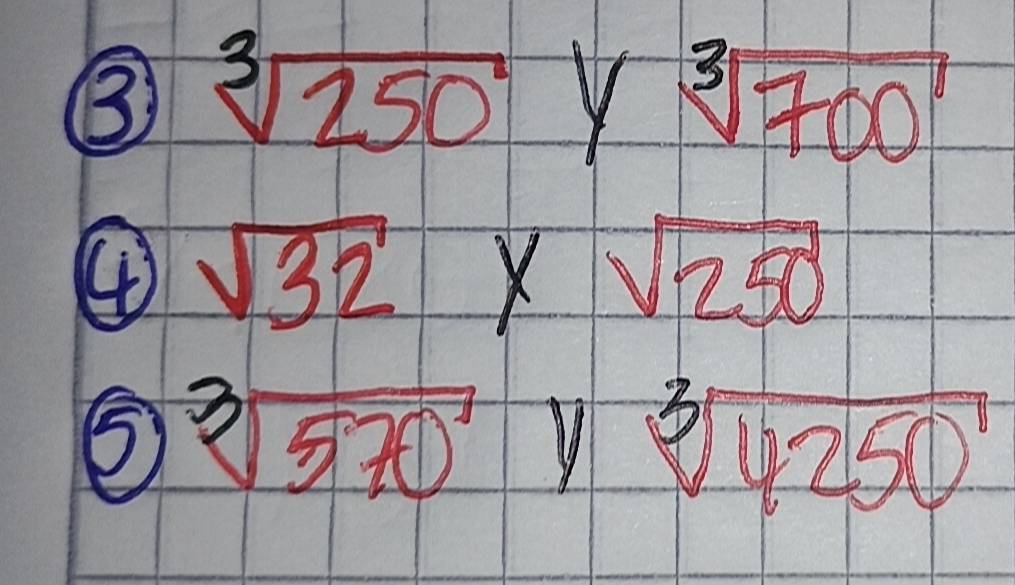 ③ ∛250 y ∛700
④ √32 y √250
⑤ ∛570 y ∛4250